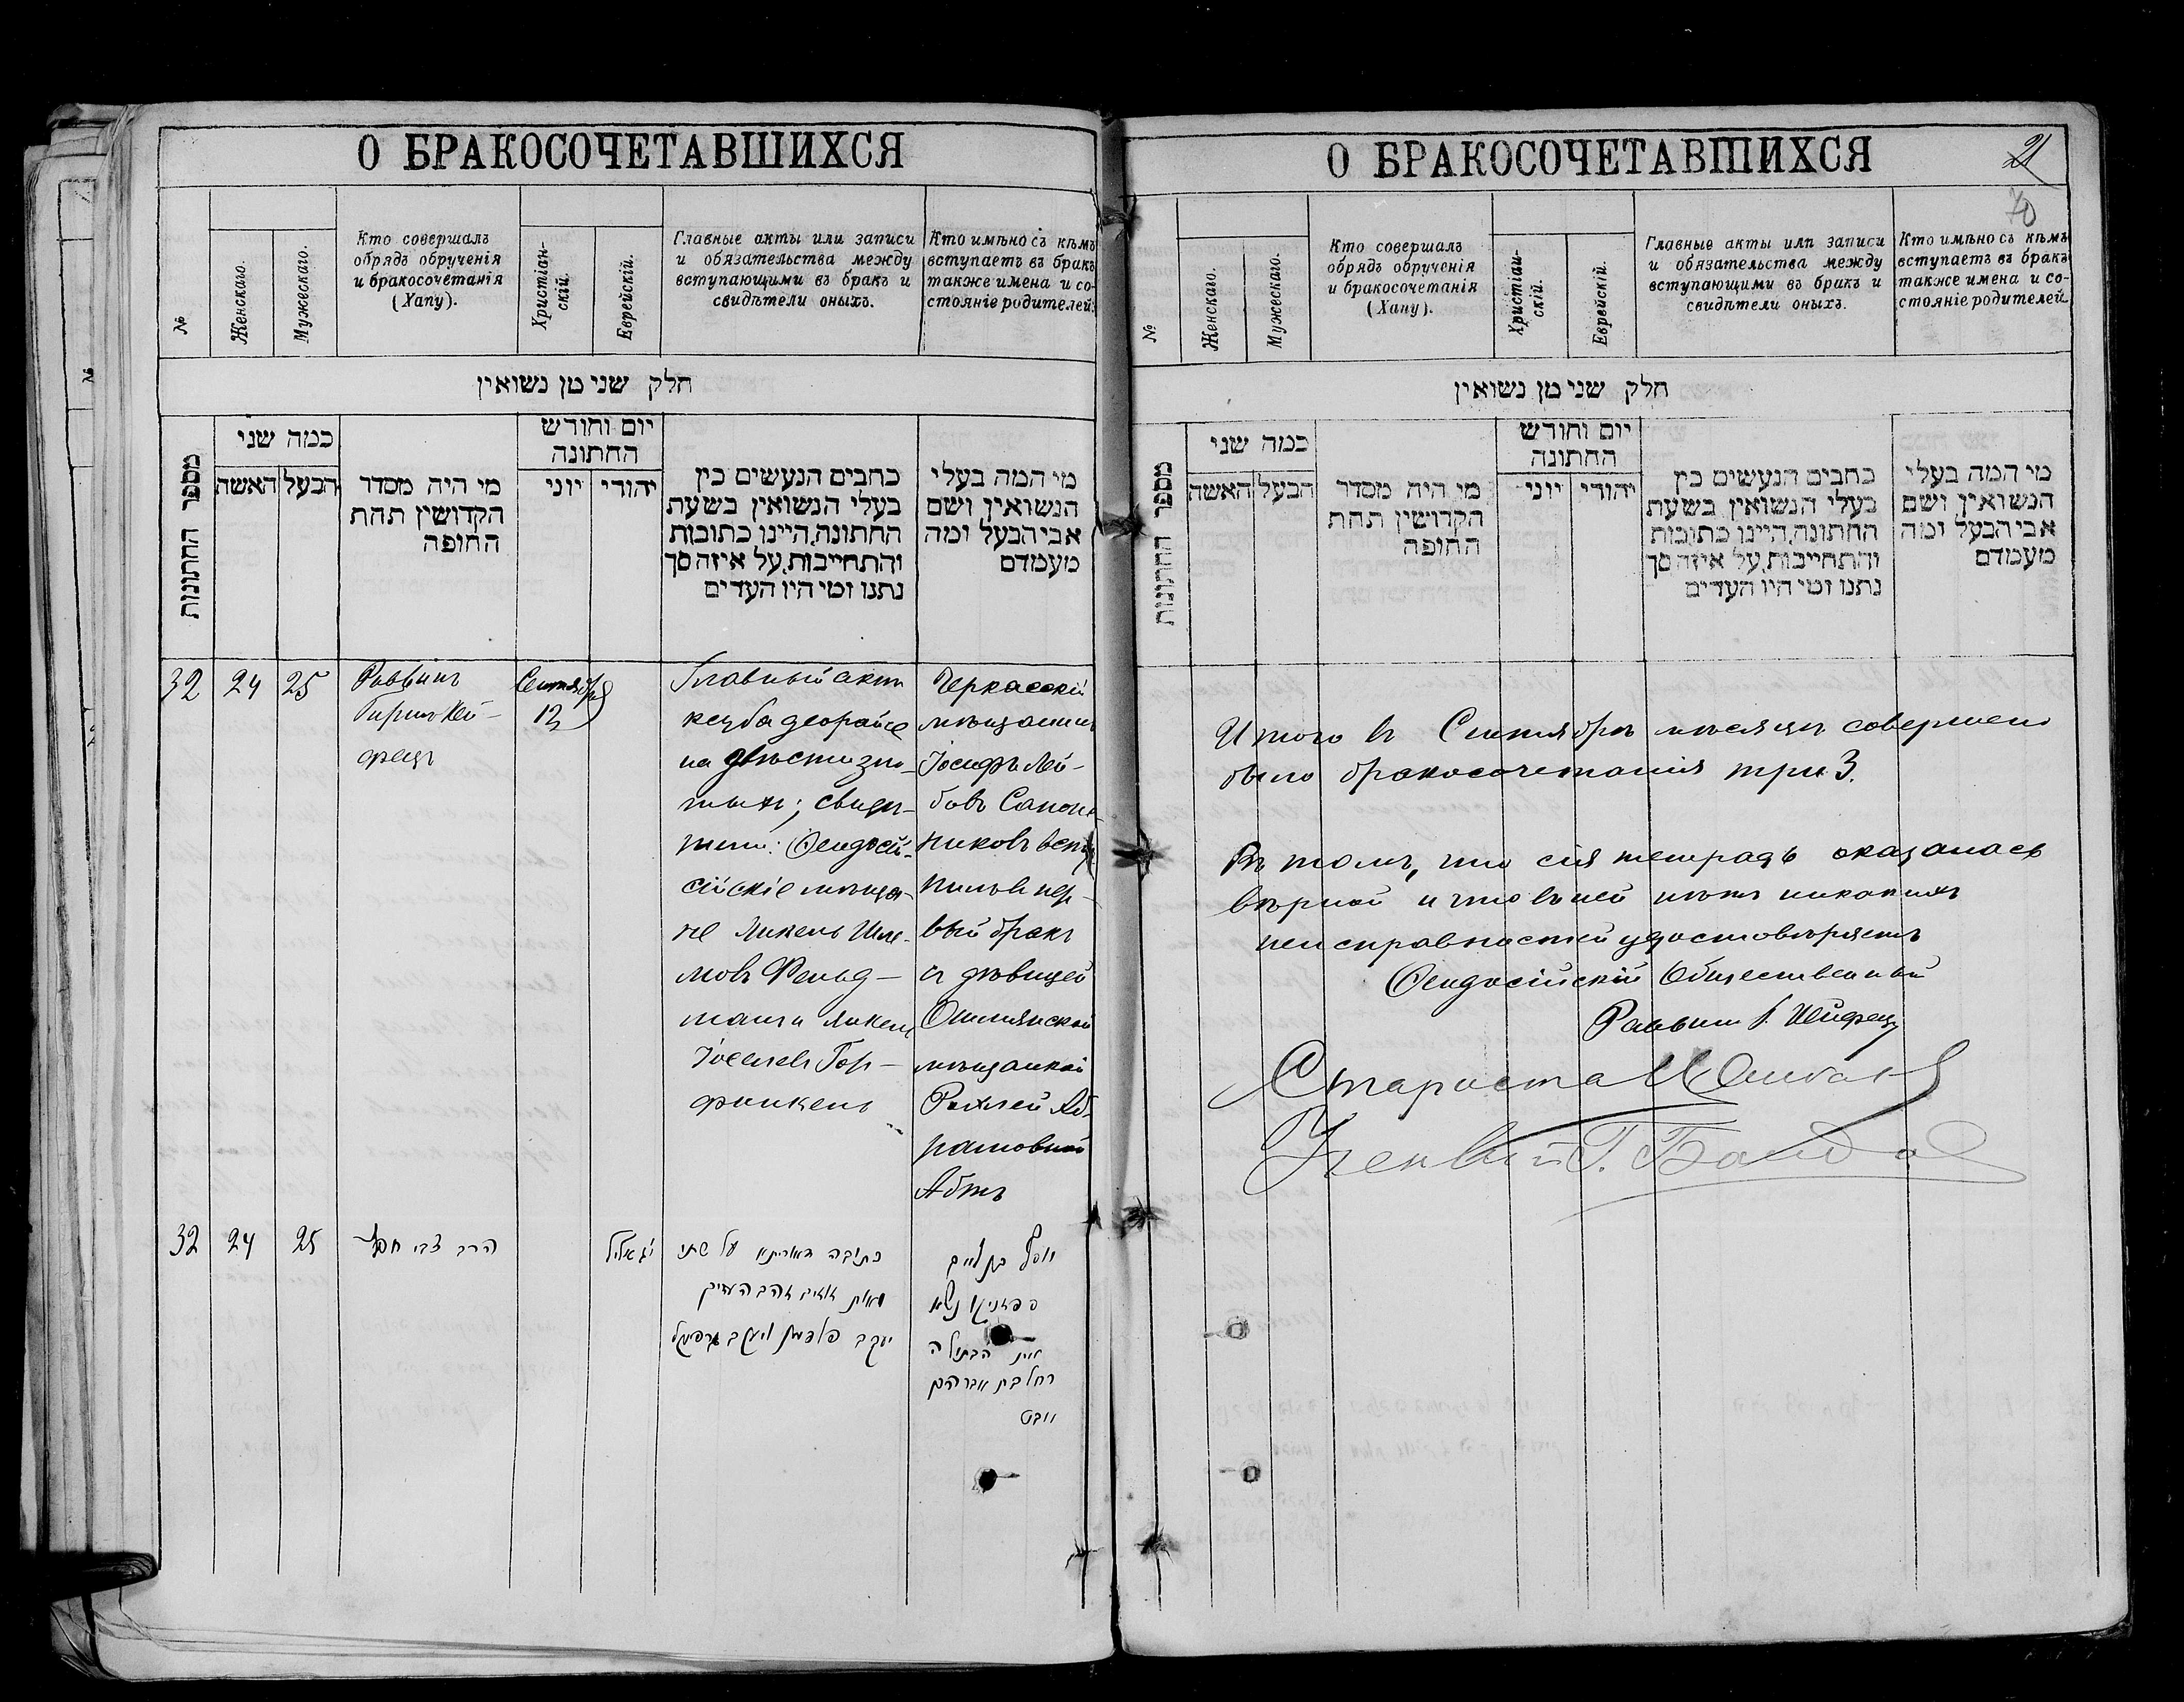 О БРАКОСОЧЕТАВШИХСЯ
№
Женскаго.
Мужескаго.
Кто совершалъ
обрядъ обрученія
и бракосочетанія
(Хапу).
Христіан-
скій.
Еврейскій.
Главные акты или записи
и обязательства между
вступающими въ бракъ и
свидѣтели оныхъ.
Кто имѣно съ кѣмъ
вступаетъ въ бракъ
также имена и со-
стояніе родителей.
חלק שני מן נשואין
מספר החתונות
כמה שני
האשה
הבעל
מי היה מסדר
הקדושין תחת
החופה
יום וחודש
החתונה
יוני
יהודי
כתבים הנעשים בין
בעלי הנשואין בשעת
החתונה, היינו כתובות
והתחייבות, על איזה סך
נתנו ומי היו העדים
מי המה בעלי
הנשואין ושם
אבי הבעל ומה
מעמדם
32
24
25
Раввинъ
Гиршъ Хей-
фецъ
Сентября
12
Главный актъ
кецуба деорайсе
на двѣсти зло-
тыхъ; свидѣ-
тели: Ѳеодосій-
сійскіе мѣща-
не Янкель Шле-
мовъ Фельд-
манъ и Янкель
Іосевъ Гор-
финкель
Черкасскій
мѣщанинъ
Іосифъ Лей-
бовъ Сапож-
никовъ всту-
пилъ въ пер-
вый бракъ
съ дѣвицей
Ошмянской
мѣщанкой
Рахлей Аб-
рамовной
Абтъ
32
24
25
הרב צבי חפץ
כתובה דאוריתא על שתי
מאות
יעקב פלדמן ויעקב
יוסף בן
הבתולה
רחל בת אברהם
О БРАКОСОЧЕТАВШИХСЯ
21
70
№
Женскаго.
Мужескаго.
Кто совершалъ
обрядъ обрученія
и бракосочетанія
(Хапу).
Христіан-
скій.
Еврейскій.
Главные акты или записи
и обязательства между
вступающими въ бракъ и
свидѣтели оныхъ.
Кто имѣно съ кѣмъ
вступаетъ въ бракъ
также имена и со-
стояніе родителей.
חלק שני מן נשואין
מספר החתונות
כמה שני
האשה
הבעל
מי היה מסדר
הקדושין תחת
החופה
יום וחודש
החתונה
יוני
יהודי
כתבים הנעשים בין
בעלי הנשואין בשעת
החתונה, היינו כתובות
והתחייבות, על איזה סך
נתנו ומי היו העדים
מי המה בעלי
הנשואין ושם
אבי הבעל ומה
מעמדם
Итого въ Сентябрѣ мѣсяцѣ совершено
было бракосочетанія три 3.
Въ томъ, что сія тетрадь оказалась
вѣрной и что въ ней нѣтъ никакихъ
неисправностей удостовѣряетъ
Ѳеодосійскій Общественный
Раввинъ Г. Хейфецъ
Староста
Ученый